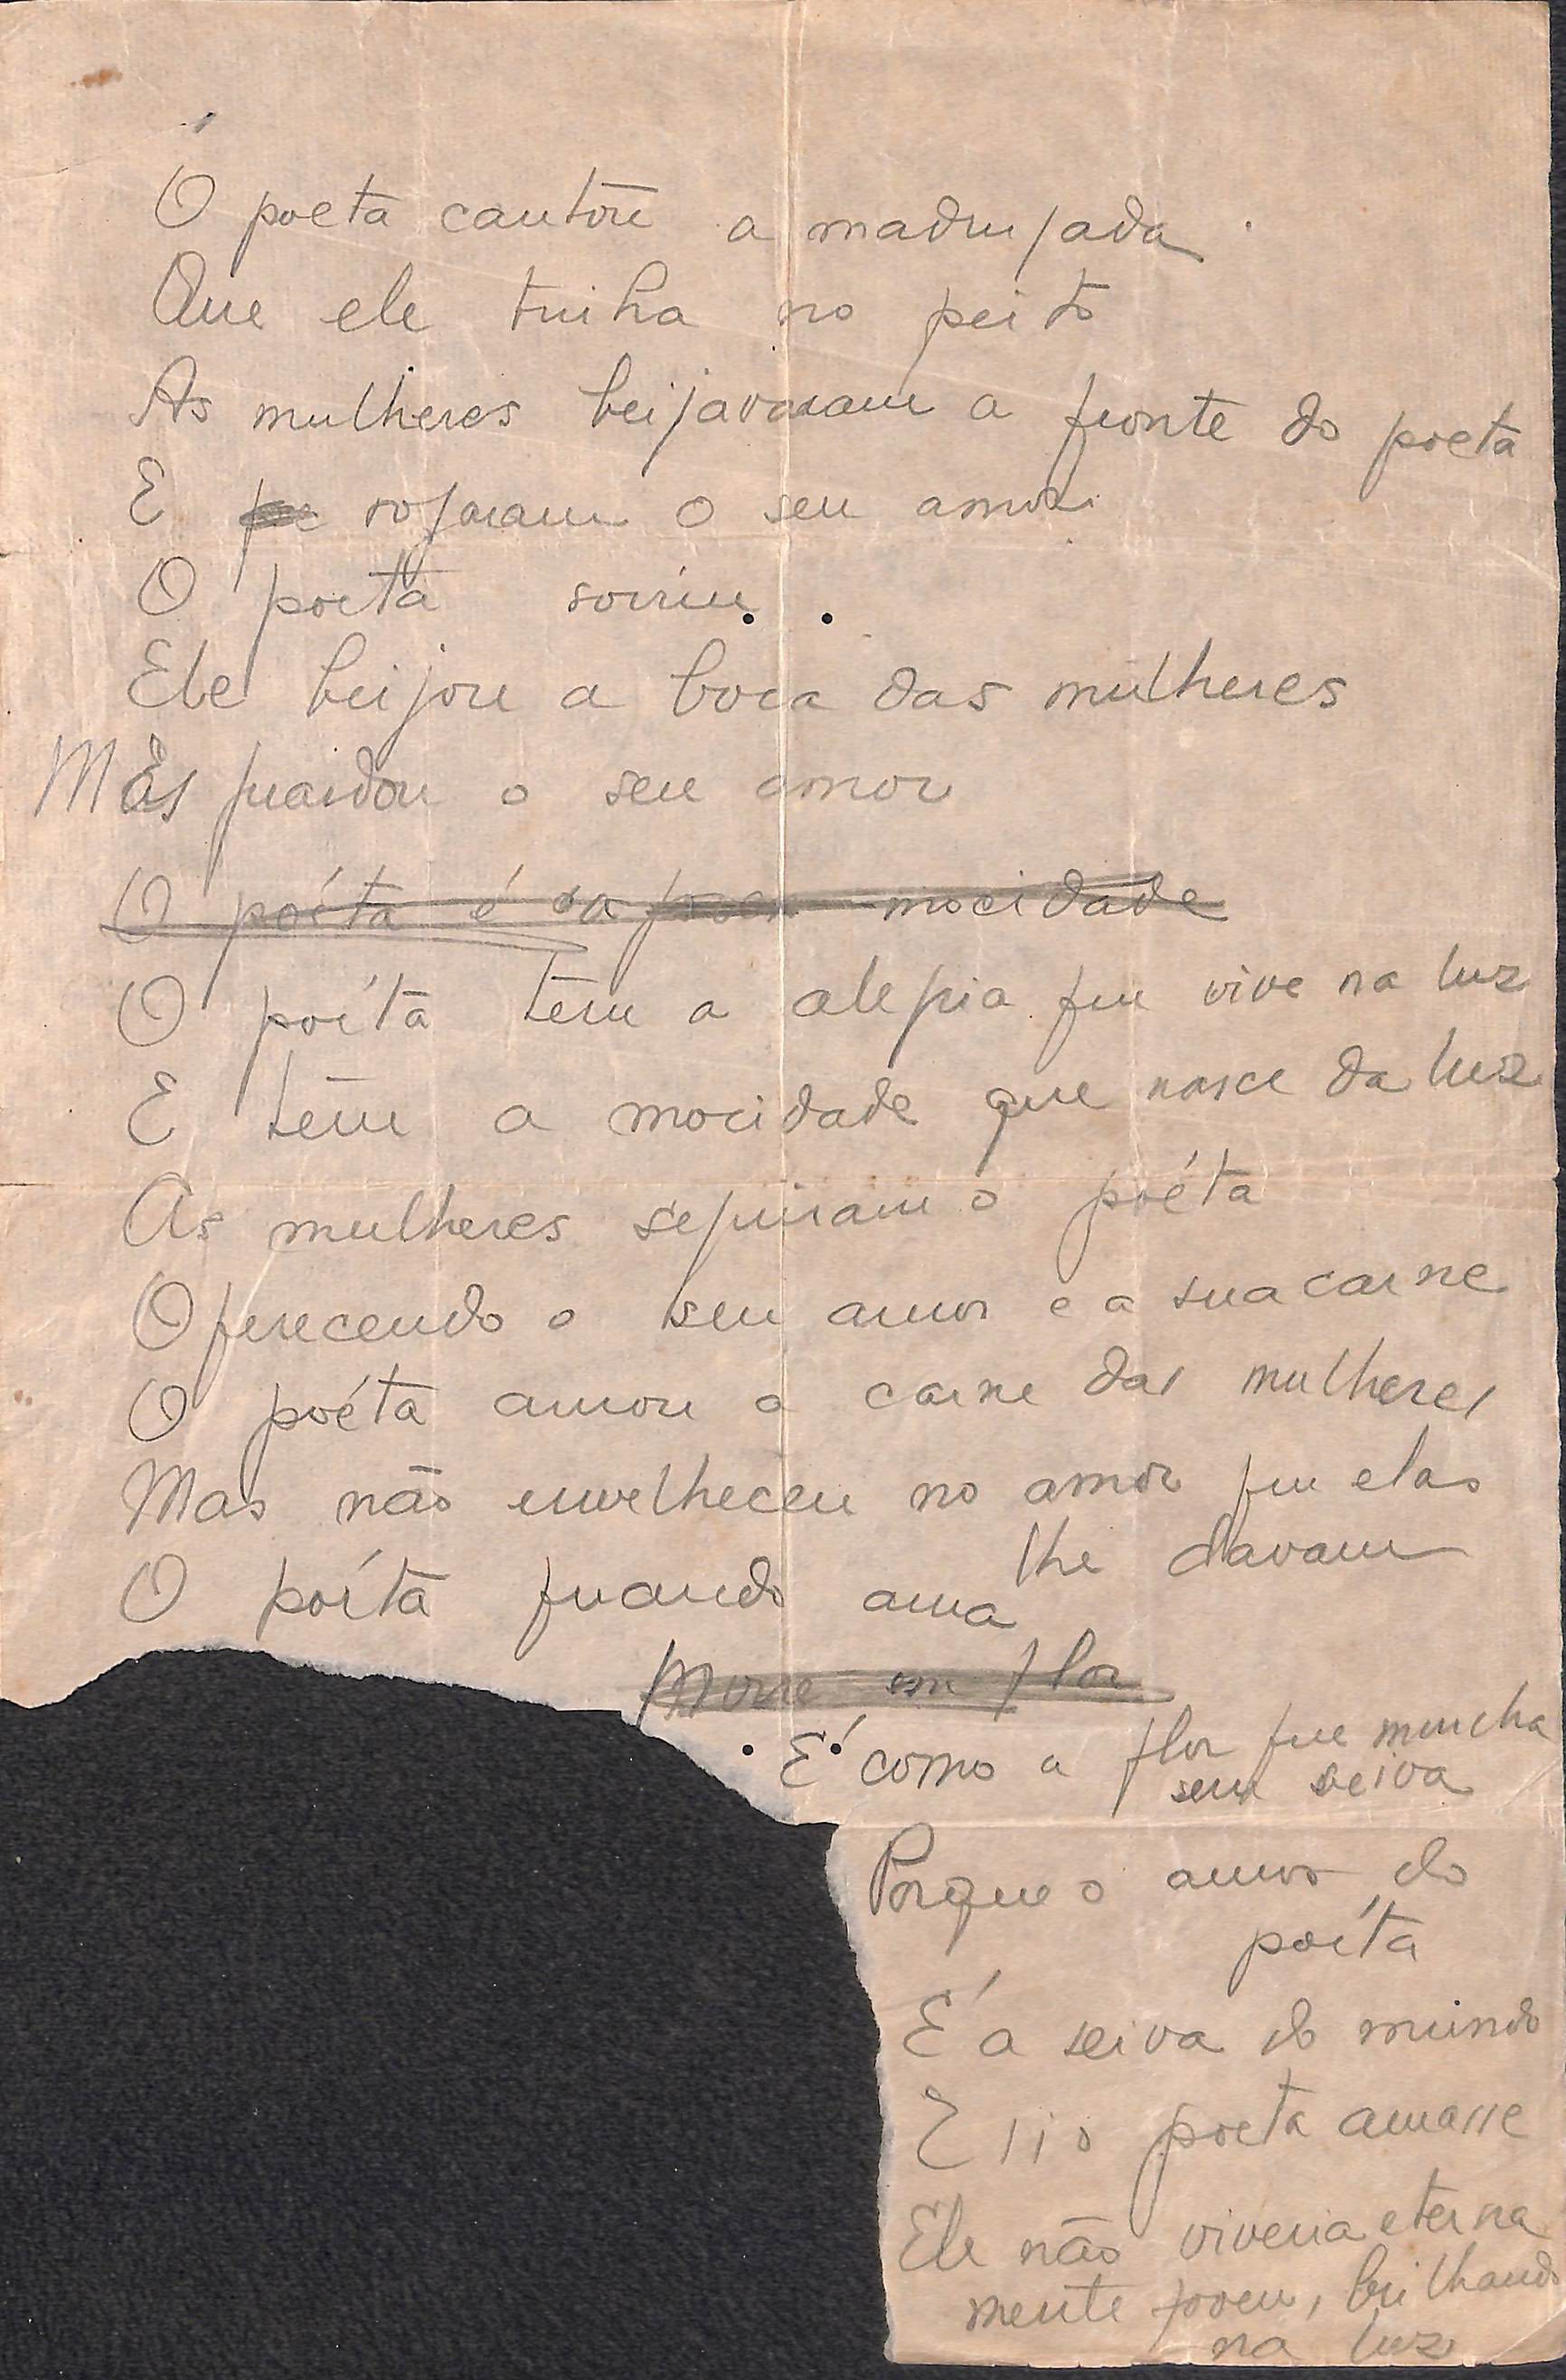 O poeta cantou a madrugada
Que ele tinha no peito
As mulheres beijavaram a fronte do poeta
E rogaram o seu amor.
O poeta sorriu.
Ele beijou a boca das mulheres
Mas guardou o seu amor
O poéta é a mocidade
O poéta tem a alegria que vive na luz
E tem a mocidade que nasce da luz
As mulheres seguiram o poéta
Oferecendo o seu amor e a sua carne
O poéta amou a carne das mulheres
Mas não envelheceu no amor que elas
lhe davam
O poéta quando ama
Morre em flor
É como a flor que murcha
sem seiva
Porque o amor do
poéta
É a seiva do mundo
E si o poeta amasse
Ele não viveria eterna
mente jovem, brilhando
na luz